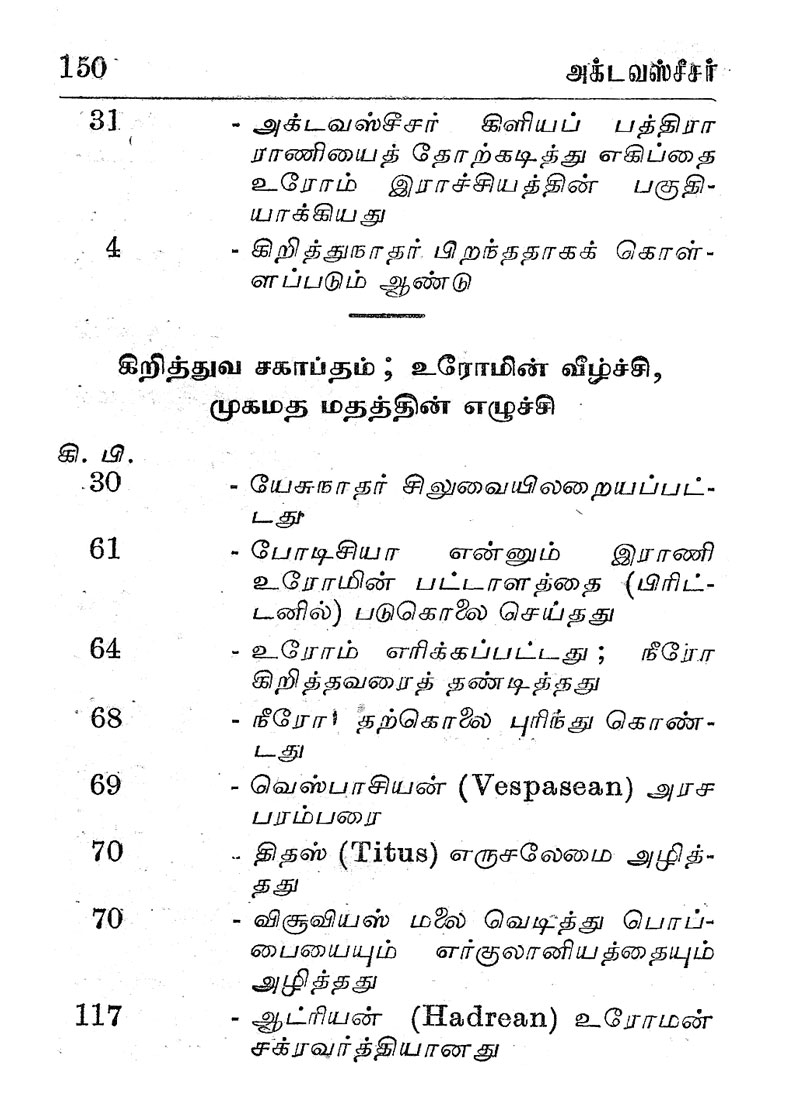 150 அக்டவஸ்சீசர்
31 - அக்டவஸ்சீசர் கிளியப் பத்திரா
ராணியைத் தோற்கடித்து எகிப்தை
உரோம் இராச்சியத்தின் பகுதி-
யாக்கியது
4 - கிறித்துநாதர் பிறந்ததாகக் கொள்-
ளப்படும் ஆண்டு
கிறித்துவ சகாப்தம் ; உரோமின் வீழ்ச்சி,
முகமத மதத்தின் எழுச்சி
கி. பி.
30 - யேசுநாதர் சிலுவையிலறையப்பட்-
டது
61 - போடிசியா என்னும் இராணி
உரோமின் பட்டாளத்தை (பிரிட்-
டனில்) படுகொலை செய்தது
64 - உரோம் எரிக்கப்பட்டது ; நீரோ
கிறித்தவரைத் தண்டித்தது
68 - நீரோ தற்கொலை புரிந்து கொண்-
டது
69 - வெஸ்பாசியன் (Vespasean) அரச
பரம்பரை
70 - திதஸ் (Titus) எருசலேமை அழித்-
தது
70 - விசூவியஸ் மலை வெடித்து பொப்-
பையையும் எர்குலானியத்தையும்
அழித்தது
117 - ஆட்ரியன் (Hadrean) உரோமன்
சக்ரவர்த்தியானது